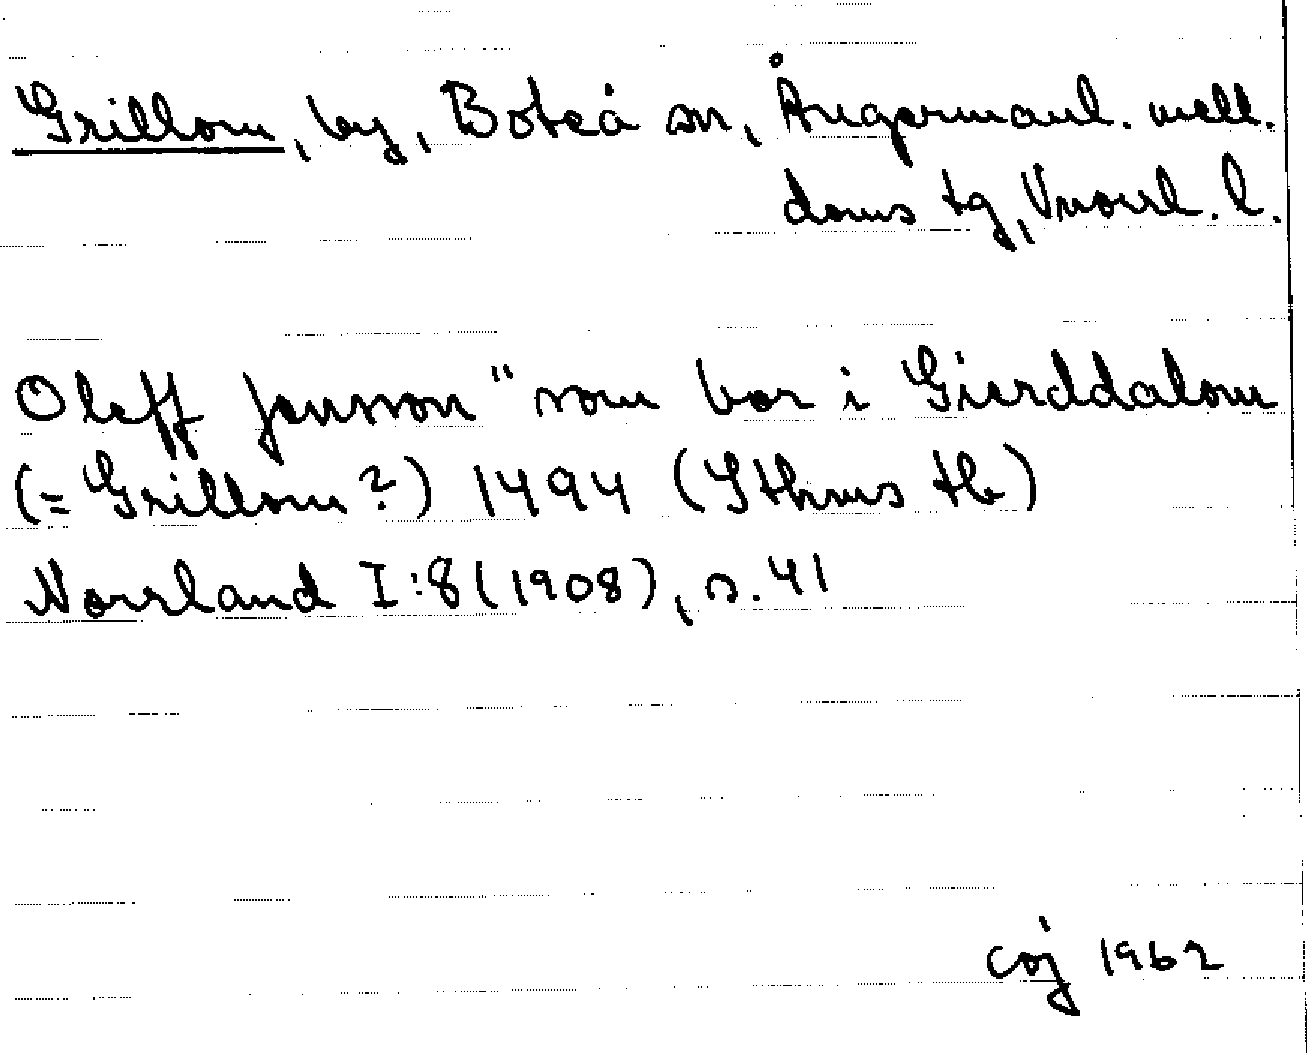 Grillom, by, Boteå sn, Ångermanl. mell.
doms tg, Vnorrl. l.
Oleff Jonsson "som bor i Gierddalom
(= Grillom?) 1494 (Sthms tb)
Norrland I:8 (1908), s. 41
coj 1962